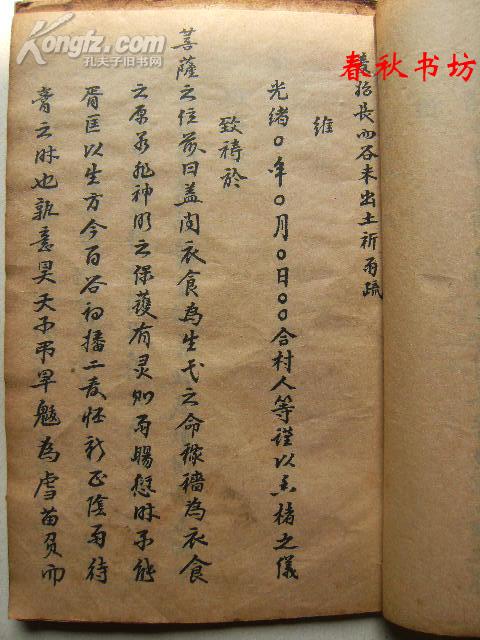 春秋书坊
Kongfz.com
孔夫子旧书网
長而谷未出土祈雨疏
維
光緒〇年〇月〇日〇〇合村人等謹以香楮之儀
致祷於
菩薩之位前曰盖闻衣食為生民之命稼穡為衣食
之原若非神明之保護有灵则雨暘愆时不能
胥匡以生方今百谷初播二麦怀新正陰雨待
膏之时也孰意昊天不弔旱魃為虐苗而